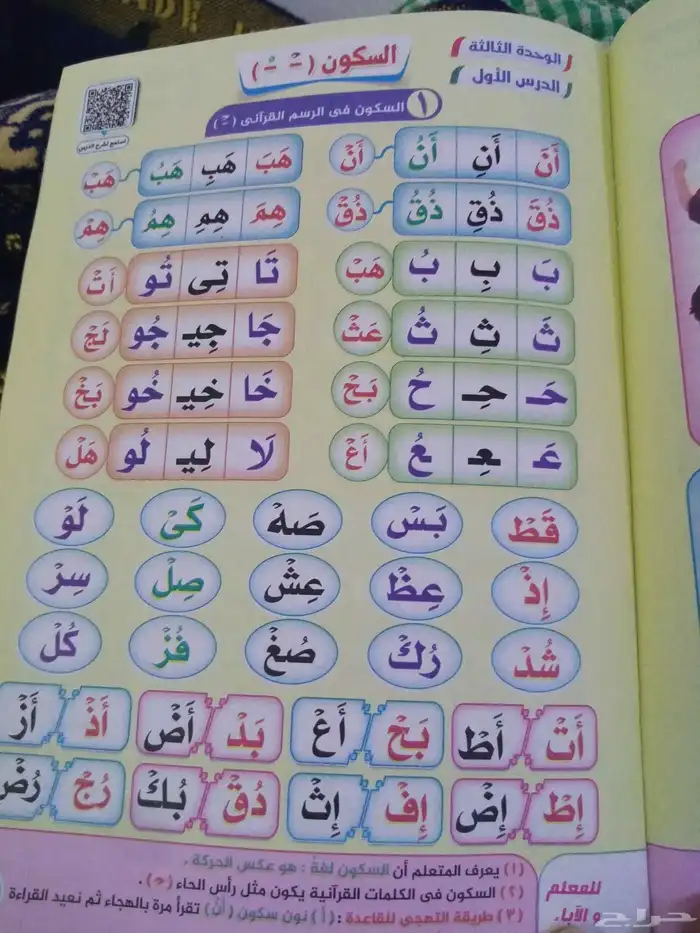 الوحدة الثالثة
الدرس الأول
السكون ( ـْـ ـۡـ )
استمع لشرح الدرس
١ السكون فى الرسم القرآنى (ـۡـ)
أَنَ أَنِ أَنُ أَنۡ هَبَ هَبِ هَبُ هَبۡ
ذُقَ ذُقِ ذُقُ ذُقۡ هِمَ هِمِ هِمُ هِمۡ
بَ بِ بُ هَبۡ تَا تِى تُو أَتۡ
ثَ ثِ ثُ عَثۡ جَا جِيـ جُو لَجۡ
حَـ حِـ حُ بَحۡ خَا خِيـ خُو بَخۡ
عَـ ـعِـ عُ أَعۡ لَا لِيـ لُو هَلۡ
قَطۡ بَسۡ صَهۡ كَىۡ لَوۡ
إِذۡ عِظۡ عِشۡ صِلۡ سِرۡ
شُدۡ رُكۡ صُغۡ فُزۡ كُلۡ
أَتۡ أَطۡ بَحۡ أَعۡ بَدۡ أَضۡ أَذۡ أَزۡ
إِطۡ إِضۡ إِفۡ إِثۡ دُقۡ بُكۡ رُجۡ رُضۡ
للمعلم
و الآباء
(١) يعرف المتعلم أن السكون لغةً : هو عكس الحركة .
(٢) السكون فى الكلمات القرآنية يكون مثل رأس الحاء (ـۡـ) .
(٣) طريقة التهجي للقاعدة : (أَ) نون سكون (أَنۡ) تقرأ مرة بالهجاء ثم نعيد القراءة
حراج